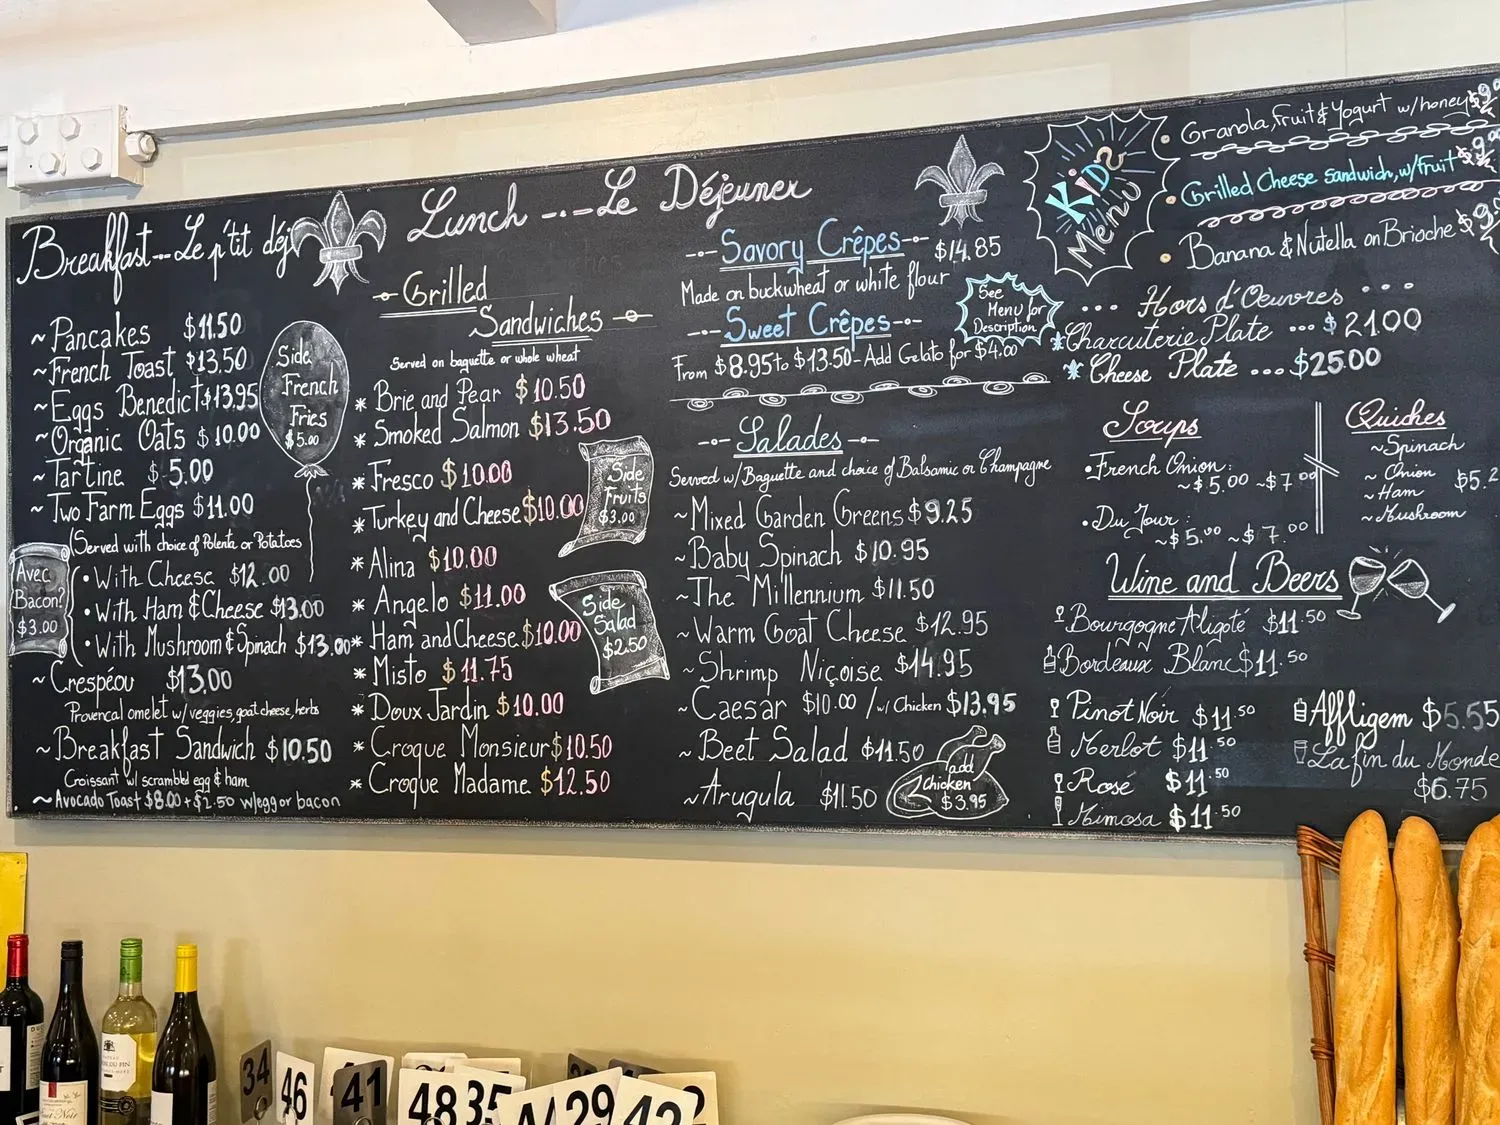 Breakfast---Le p'tit déj
~Pancakes $11.50
~French Toast $13.50
~Eggs Benedict $13.95
~Organic Oats $10.00
~Tartine $5.00
~Two Farm Eggs $11.00
(Served with choice of Polenta or Potatoes
•With Cheese $12.00
•With Ham & Cheese $13.00
•With Mushroom & Spinach $13.00
Avec
Bacon?
$3.00
~Crespéou $13.00
Provencal omelet w/ veggies, goat cheese, herbs
~Breakfast Sandwich $10.50
Croissant w/ scrambled egg & ham
~Avocado Toast $8.00 + $2.50 w/egg or bacon
Side
French
Fries
$5.00
Lunch -.-Le Déjeuner
Grilled
Sandwiches
Served on baguette or whole wheat
* Brie and Pear $10.50
* Smoked Salmon $13.50
* Fresco $10.00
* Turkey and Cheese $10.00
* Alina $10.00
* Angelo $11.00
* Ham and Cheese $10.00
* Misto $11.75
* Doux Jardin $10.00
* Croque Monsieur $10.50
* Croque Madame $12.50
Side
Fruits
$3.00
Side
Salad
$2.50
Savory Crêpes $14.85
Made on buckwheat or white flour
Sweet Crêpes
From $8.95 to $13.50 - Add Gelato for $4.00
See
Menu for
Description
Salades
Served w/Baguette and choice of Balsamic or Champagne
~Mixed Garden Greens $9.25
~Baby Spinach $10.95
~The Millennium $11.50
~Warm Goat Cheese $12.95
~Shrimp Niçoise $14.95
~Caesar $10.00 /w/ Chicken $13.95
~Beet Salad $11.50
~Arugula $11.50
add
Chicken
$3.95
Kids
Menu
• Granola, Fruit & Yogurt w/honey
• Grilled Cheese sandwich, w/fruit
• Banana & Nutella on Brioche
... Hors d'Oeuvres ...
Charcuterie Plate ... $21.00
Cheese Plate ... $25.00
Soups
•French Onion:
~$5.00 ~$7.00
•Du Jour:
~$5.00 ~$7.00
Quiches
~Spinach
~Onion
~Ham
~Mushroom
$5.2
Wine and Beers
Bourgogne Aligoté $11.50
Bordeaux Blanc $11.50
Pinot Noir $11.50
Merlot $11.50
Rosé $11.50
Mimosa $11.50
Affligem $5.55
La fin du Monde
$6.75
34
46
41
48
35
29